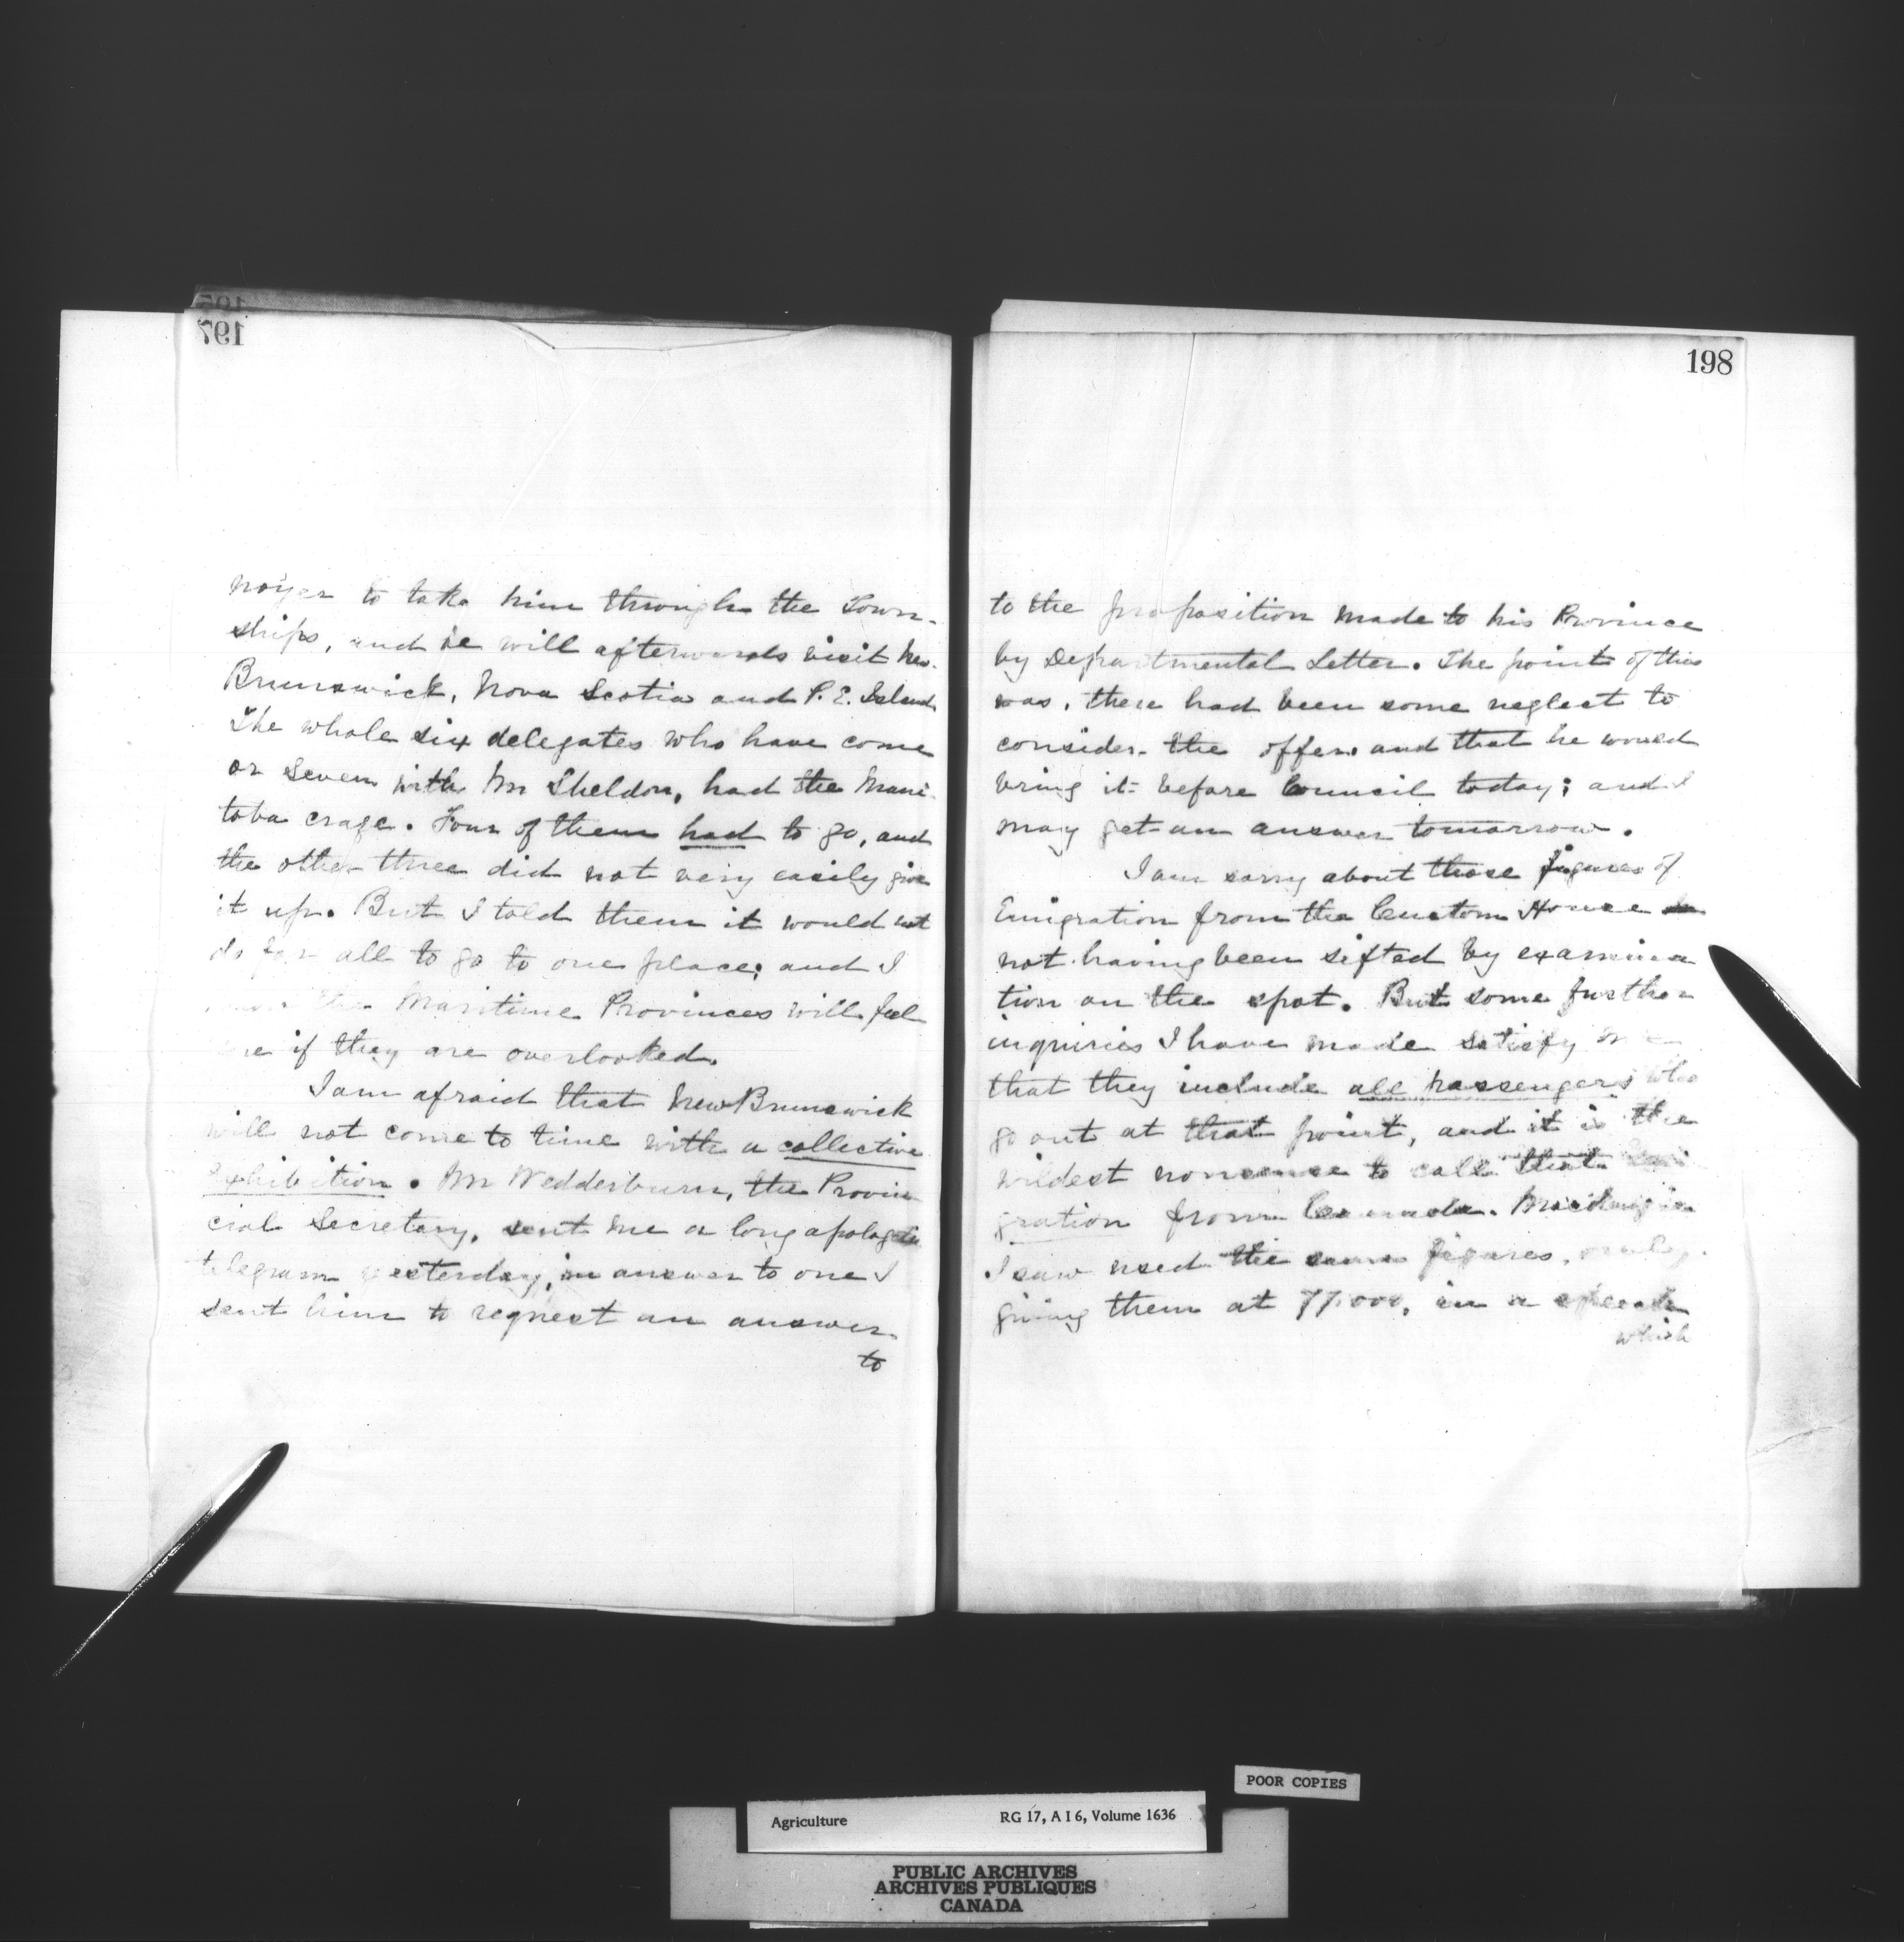 195
197
noyer to take him through the Town-
ships, and he will afterwards visit New
Brunswick, Nova Scotia and P. E. Island.
The whole six delegates who have come
or seven with Mr Sheldon, had the Mani-
toba craze. Four of them had to go, and
the other three did not very easily give
it up. But I told them it would not
do for all to go to one place; and I
the Maritime Provinces will feel
if they are overlooked.
I am afraid that New Brunswick
will not come to time with a collective
Exhibition. Mr Wedderburn, the Provin
cial Secretary, sent me a long apologetic
telegram yesterday, in answer to one I
sent him to request an answer
to
198
to the proposition made to his Province
by Departmental Letter. The point of this
was, there had been some neglect to
consider the offer and that he would
bring it before Council today; and I
may get an answer tomorrow.
I am sorry about those figures of
Emigration from the Custom House
not having been sifted by examina
tion on the spot. But some further
inquiries I have made satisfy me
that they include all passengers who
go out at that point, and it is the
wildest nonsense to call that
gration from Canada.
I saw used the same figures, only
giving them at 77.000, in a speech
which
POOR COPIES
Agriculture RG 17, A I 6, Volume 1636
PUBLIC ARCHIVES
ARCHIVES PUBLIQUES
CANADA